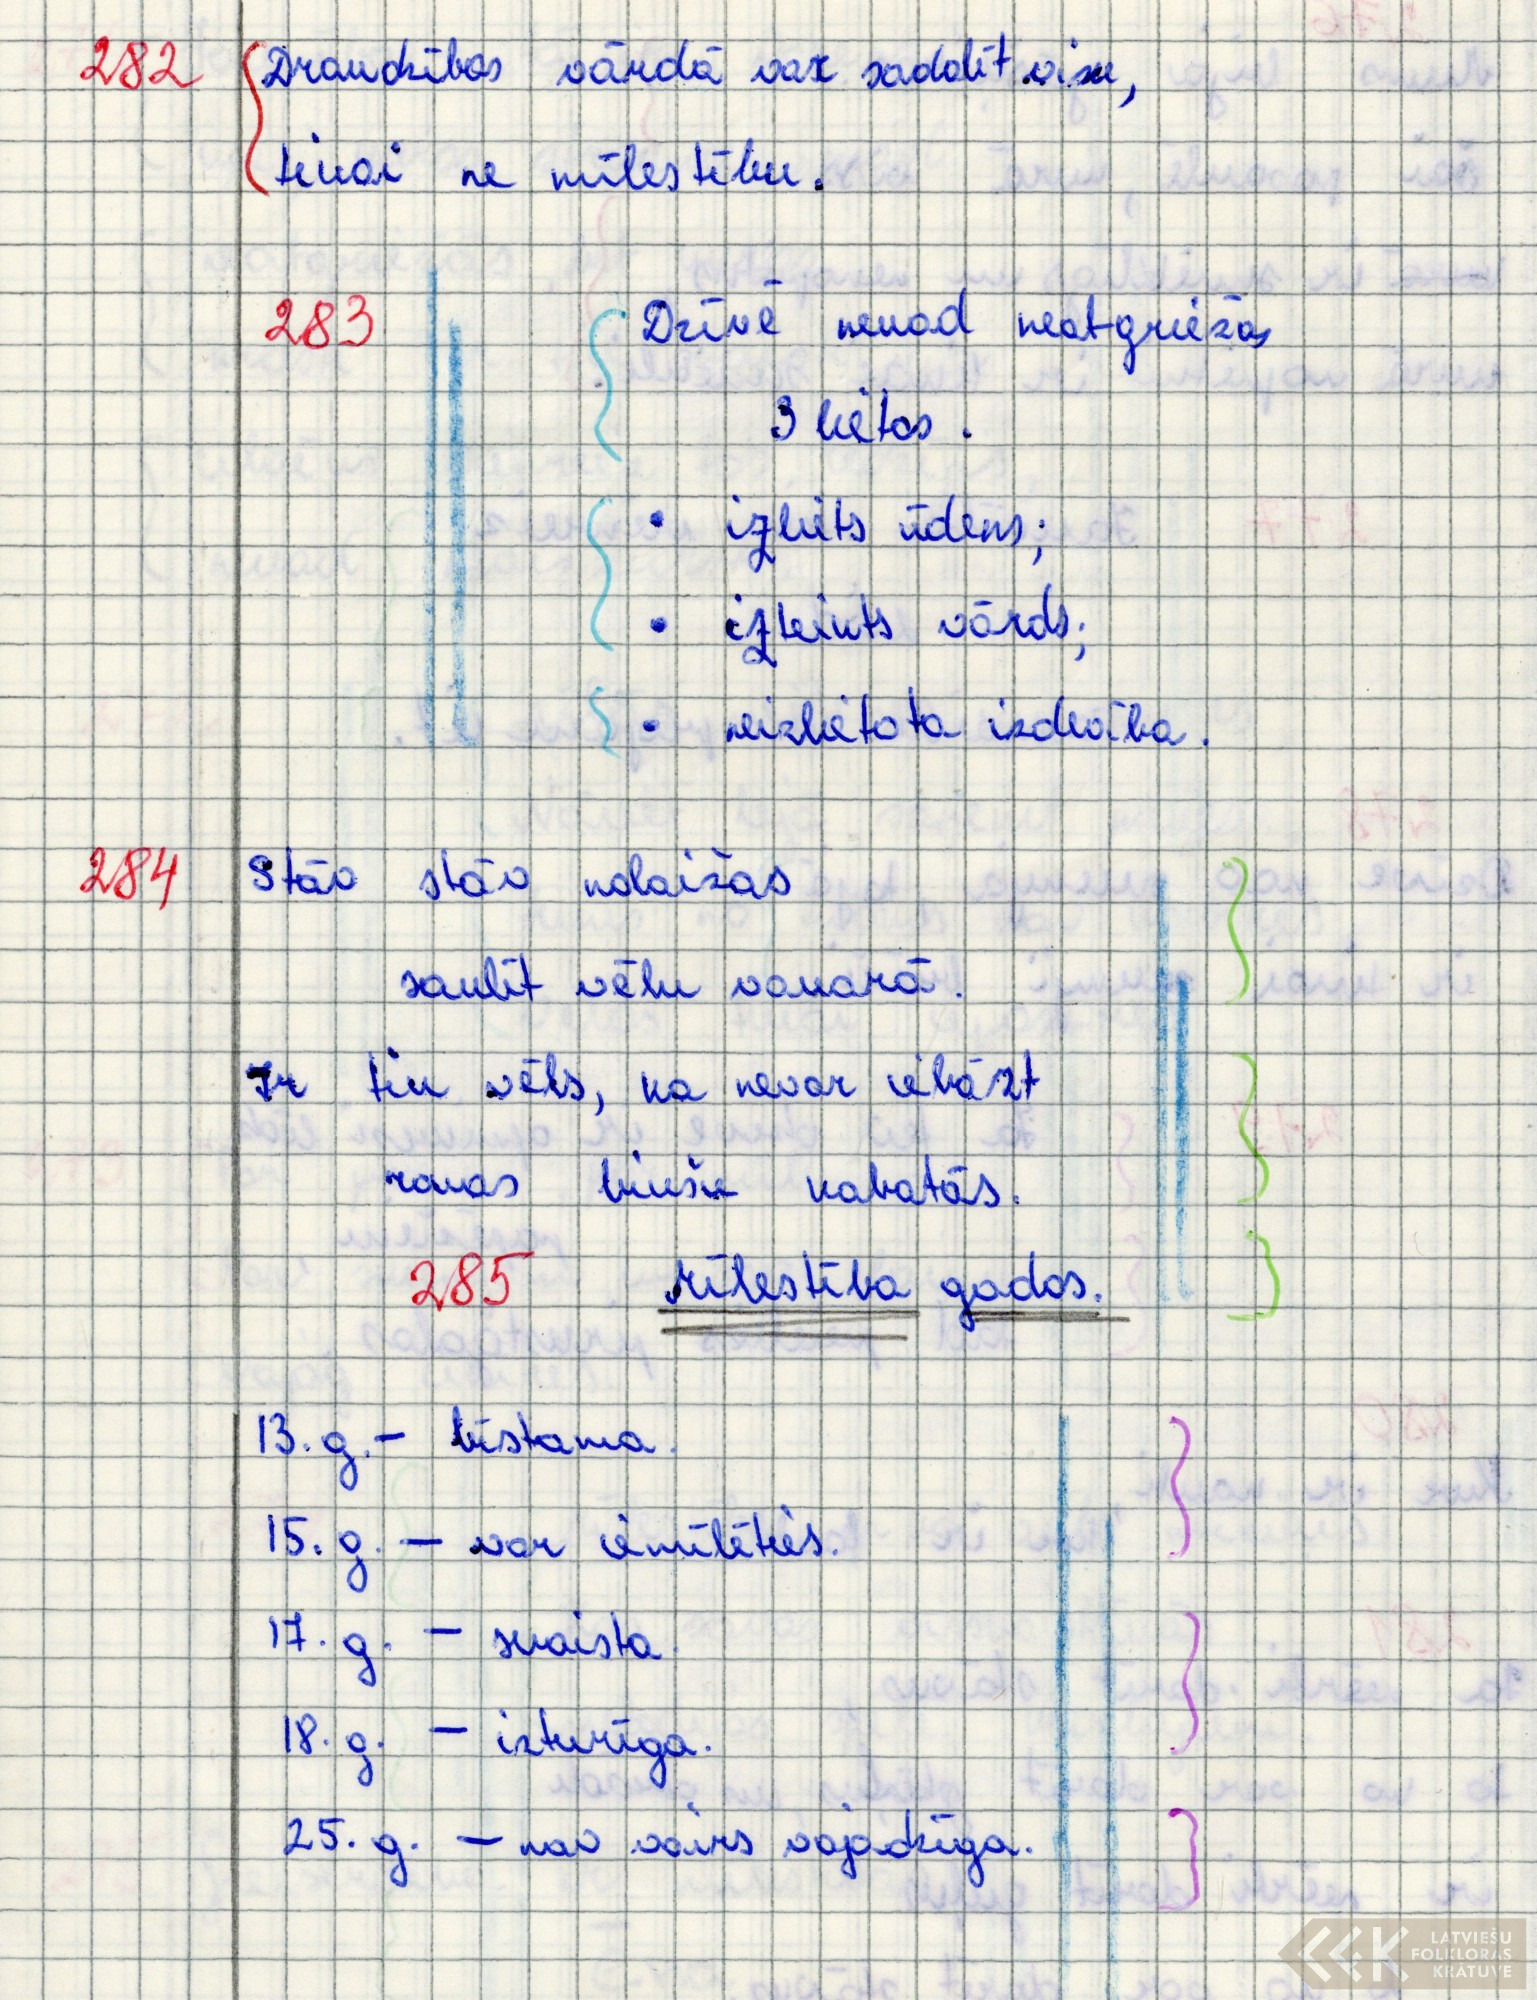 282 Draudzības vārdā var sadalīt visu,
tikai ne mīlestību.
283 Dzīvē nekad neatgriežas
3 lietas.
• izliets ūdens;
• izteikts vārds;
• neizlietota izdevība.
284 Stāv stāv nolaižas
saulīt vēlu vakarā.
Ir tik vēls, ka nevar iebāzt
rokas bikšu kabatās.
285 Mīlestība gados.
13. g. – bīstama.
15. g. – var iemīlēties.
17. g. – skaista.
18. g. – izturīga.
25. g. – nav vairs vajadzīga.
LATVIEŠU
FOLKLORAS
KRĀTUVE